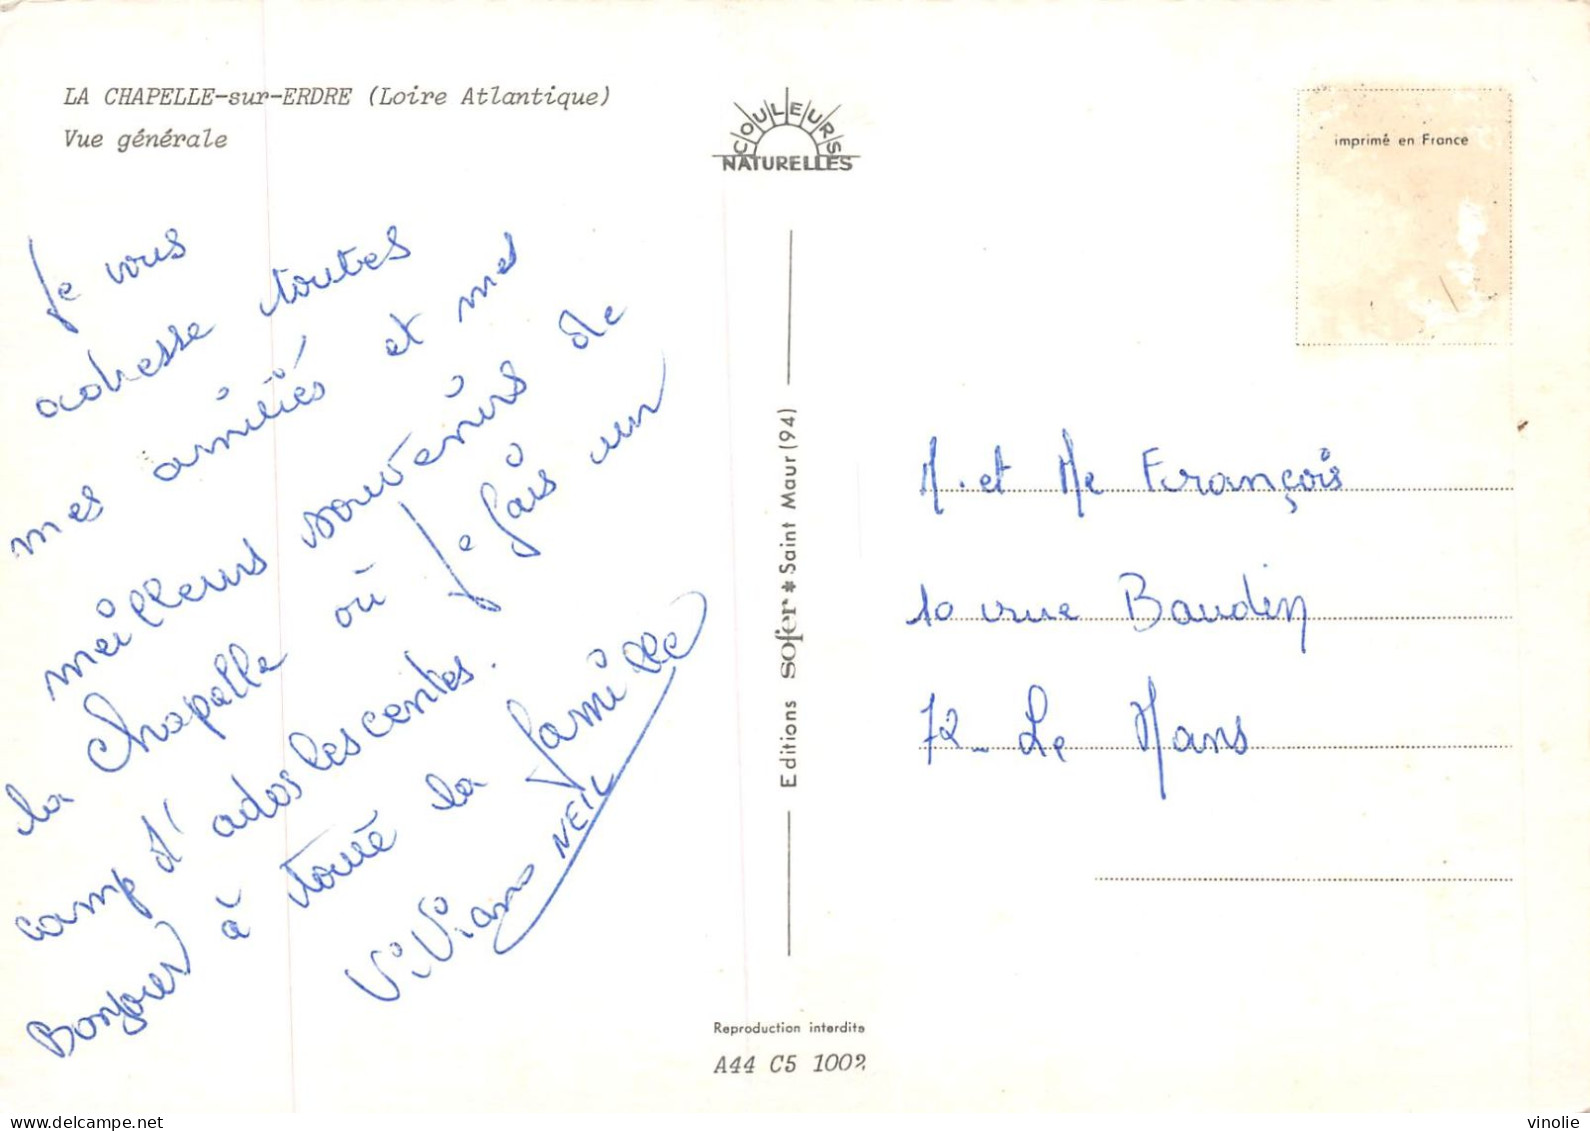 LA CHAPELLE-sur-ERDRE (Loire Atlantique)
Vue générale
COULEURS
NATURELLES
imprimé en France
Je vous
adresse toutes
mes amitiés et mes
meilleurs souvenirs de
la Chapelle où je fais un
camp d'adolescentes.
Bonjour à toute la famille
Viviane NEIL
Editions sofer * Saint Maur (94)
M. et Me François
10 rue Baudin
72 - Le Mans
Reproduction interdite
A44 C5 1002
delcampe.net
vinolie